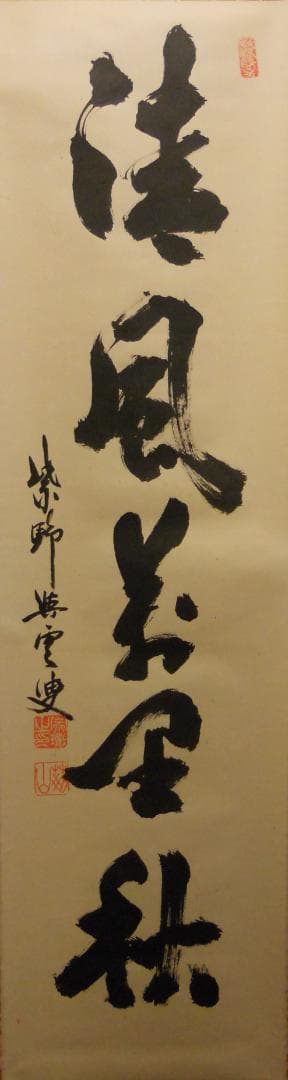 清風万里秋
紫野 雲叟